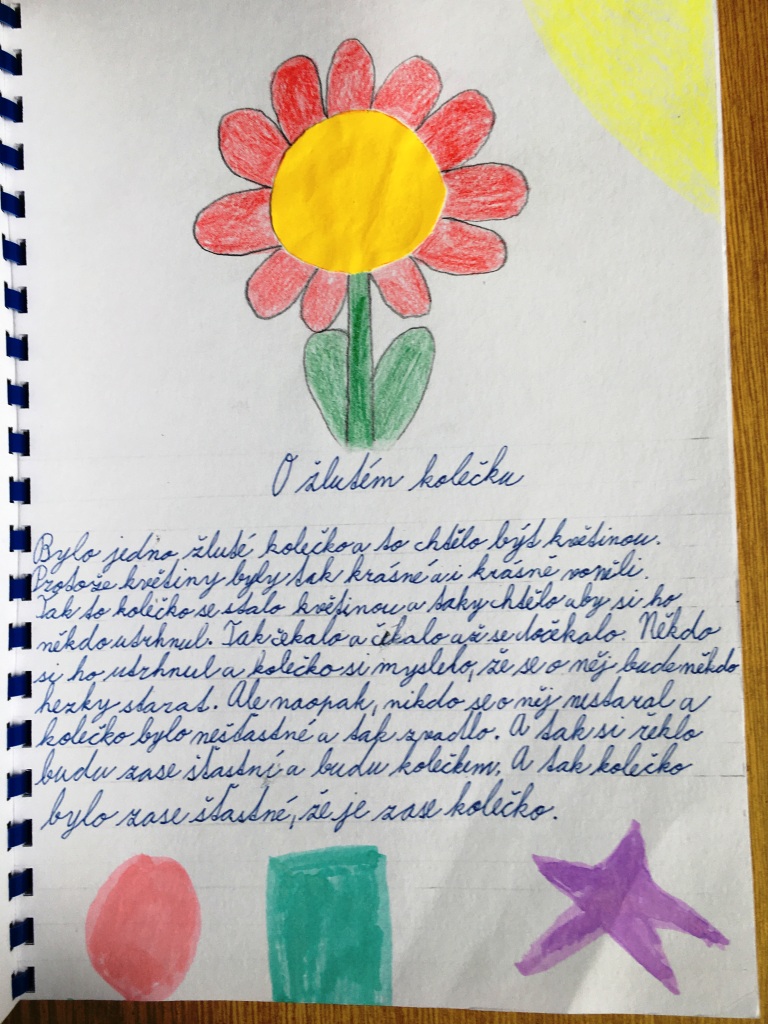 O žlutém kolečku
Bylo jedno žluté kolečko a to chtělo být květinou.
Protože květiny byly tak krásné a i krásně voněli.
Tak to kolečko se stalo květinou a taky chtělo aby si ho
někdo utrhnul. Tak čekalo a čekalo až se dočekalo. Někdo
si ho utrhnul a kolečko si myslelo, že se o něj bude někdo
hezky starat. Ale naopak, nikdo se o něj nestaral a
kolečko bylo nešťastné a tak zvadlo. A tak si řeklo
budu zase šťastní a budu kolečkem. A tak kolečko
bylo zase šťastné, že je zase kolečko.